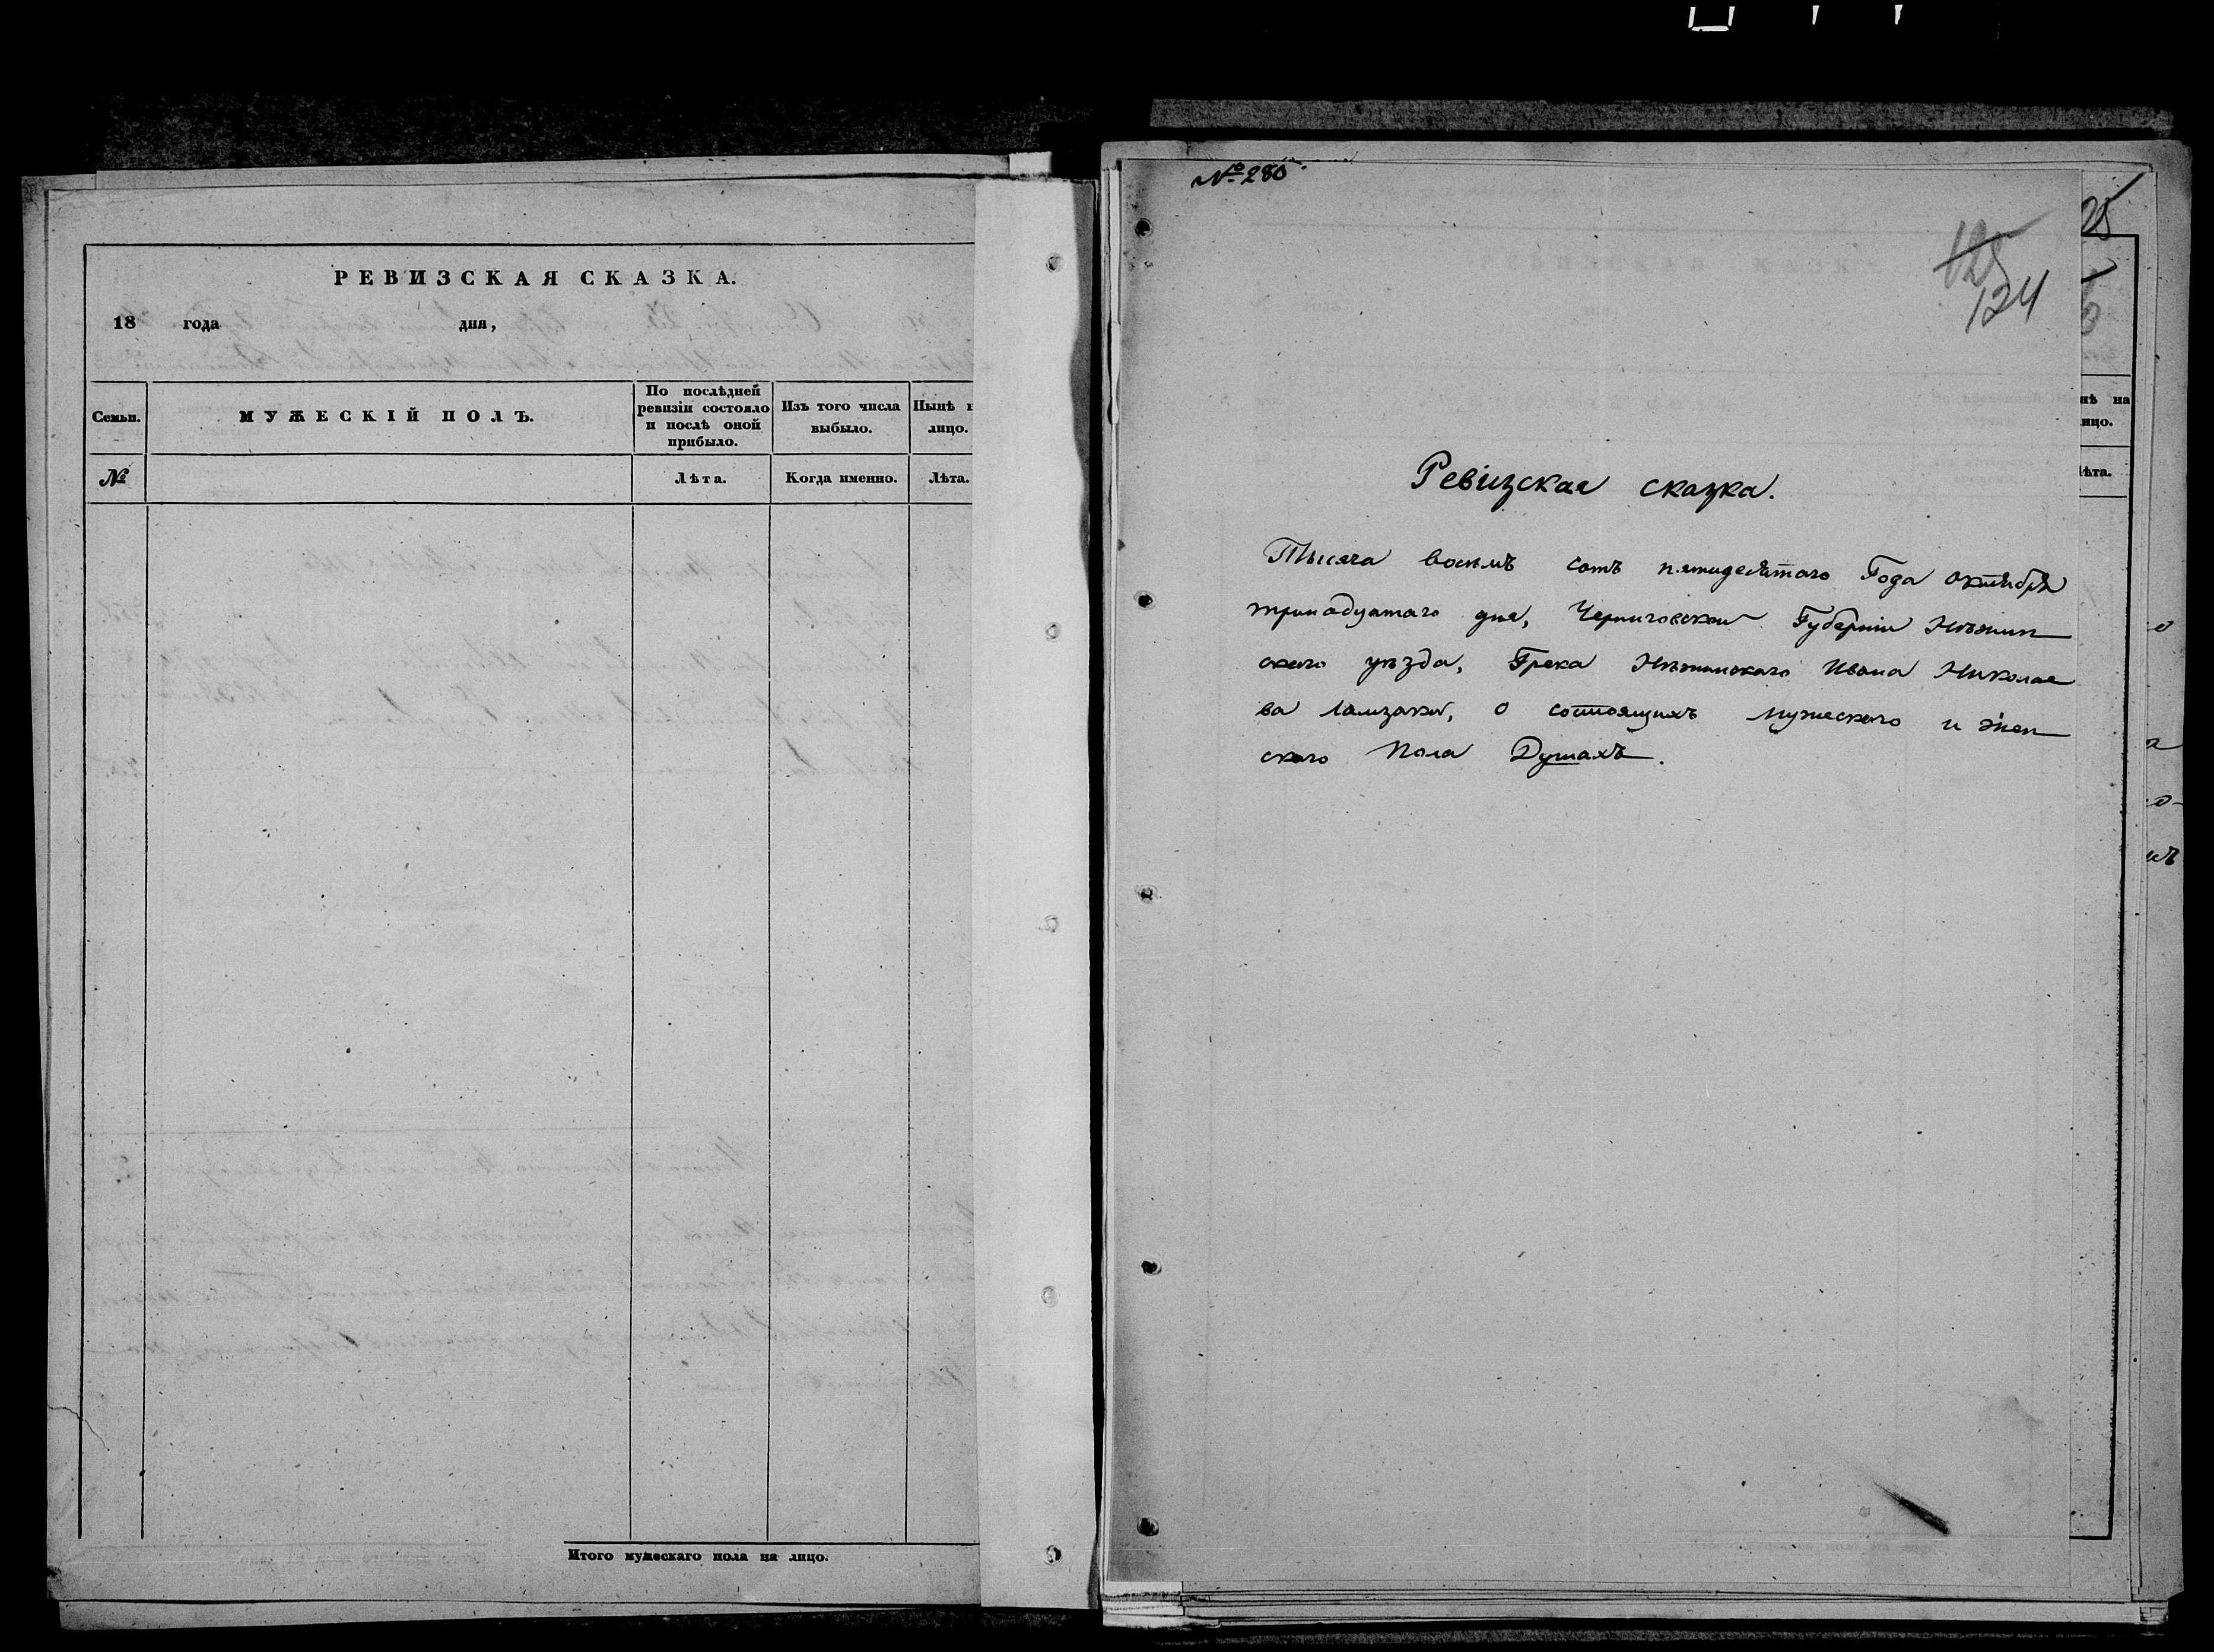 РЕВИЗСКАЯ СКАЗКА.
18 года дня,
Семьи.
МУЖЕСКІЙ ПОЛЪ.
По послѣдней
ревизіи состояло
и послѣ оной
прибыло.
Изъ того числа
выбыло.
Нынѣ н
лицо.
№
Лѣта.
Когда именно.
Лѣта.
Итого мужескаго пола на лицо.
№ 280
125
124
Ревизская сказка.
Тысяча восемъ сотъ пятидесятаго Года октября
тринадцатаго дня, Черниговской Губерніи Нѣжин
скаго уѣзда, Грека Нѣжинскаго Ивана Николае
ва , о состоящихъ мужескаго и жен
скаго Пола Душахъ.
нѣ на
ицо.
ѣта.